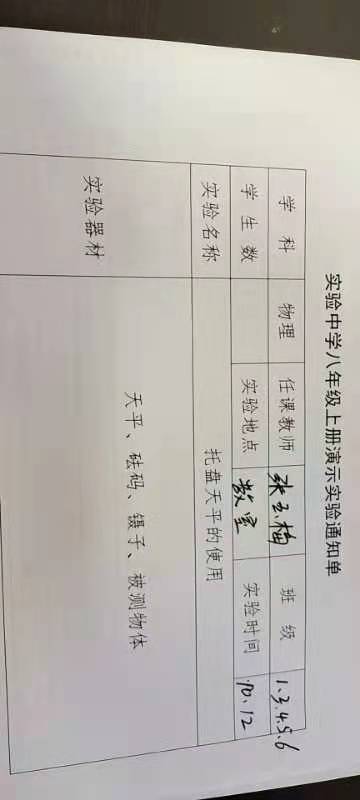 实验中学八年级上册演示实验通知单
学 科 物理 任课教师 张玉梅 班 级 1.3.4.5.6
学 生 数 实验地点 教室 实验时间 10.12
实验名称 托盘天平的使用
实验器材 天平、砝码、镊子、被测物体